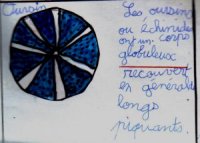 Oursin
Les oursins
ou échinides
ont un corps
globuleux
recouvert
en général
longs
piquants.